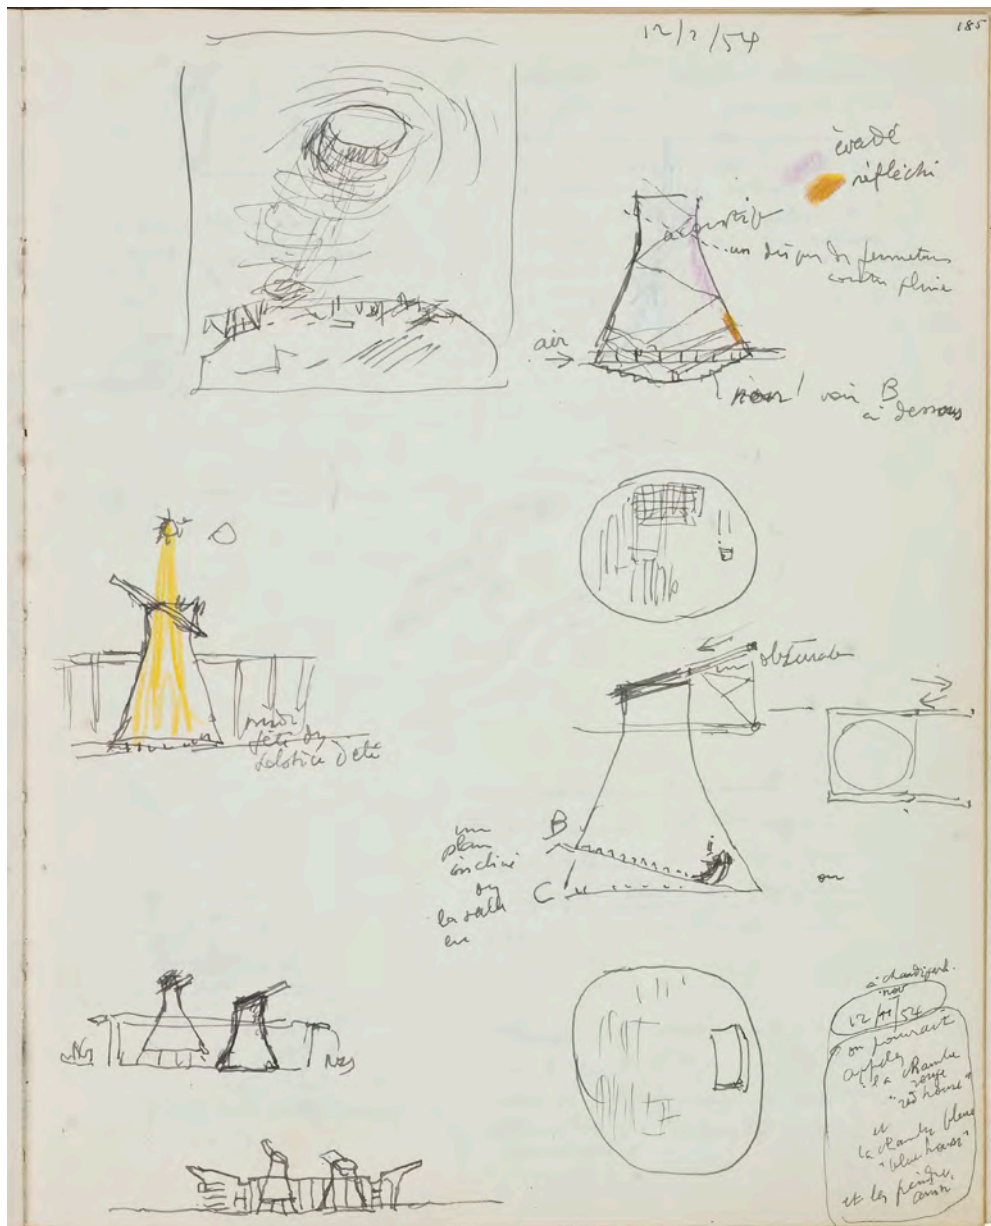 12/2/54
185
évadé
réfléchi
acoustique
un disque de fermeture
contre pluie
air
voir B
à dessous
midi
fête du
solstice d'été
un obturateur
B
C
un
plan
incliné
ou
la salle
en
ou
à chandigarh.
nov
12/11/54
on pourrait
appeler
"la chambre
rouge
"red house"
et
la chambre bleue
"blue house"
et les peindre
ainsi.